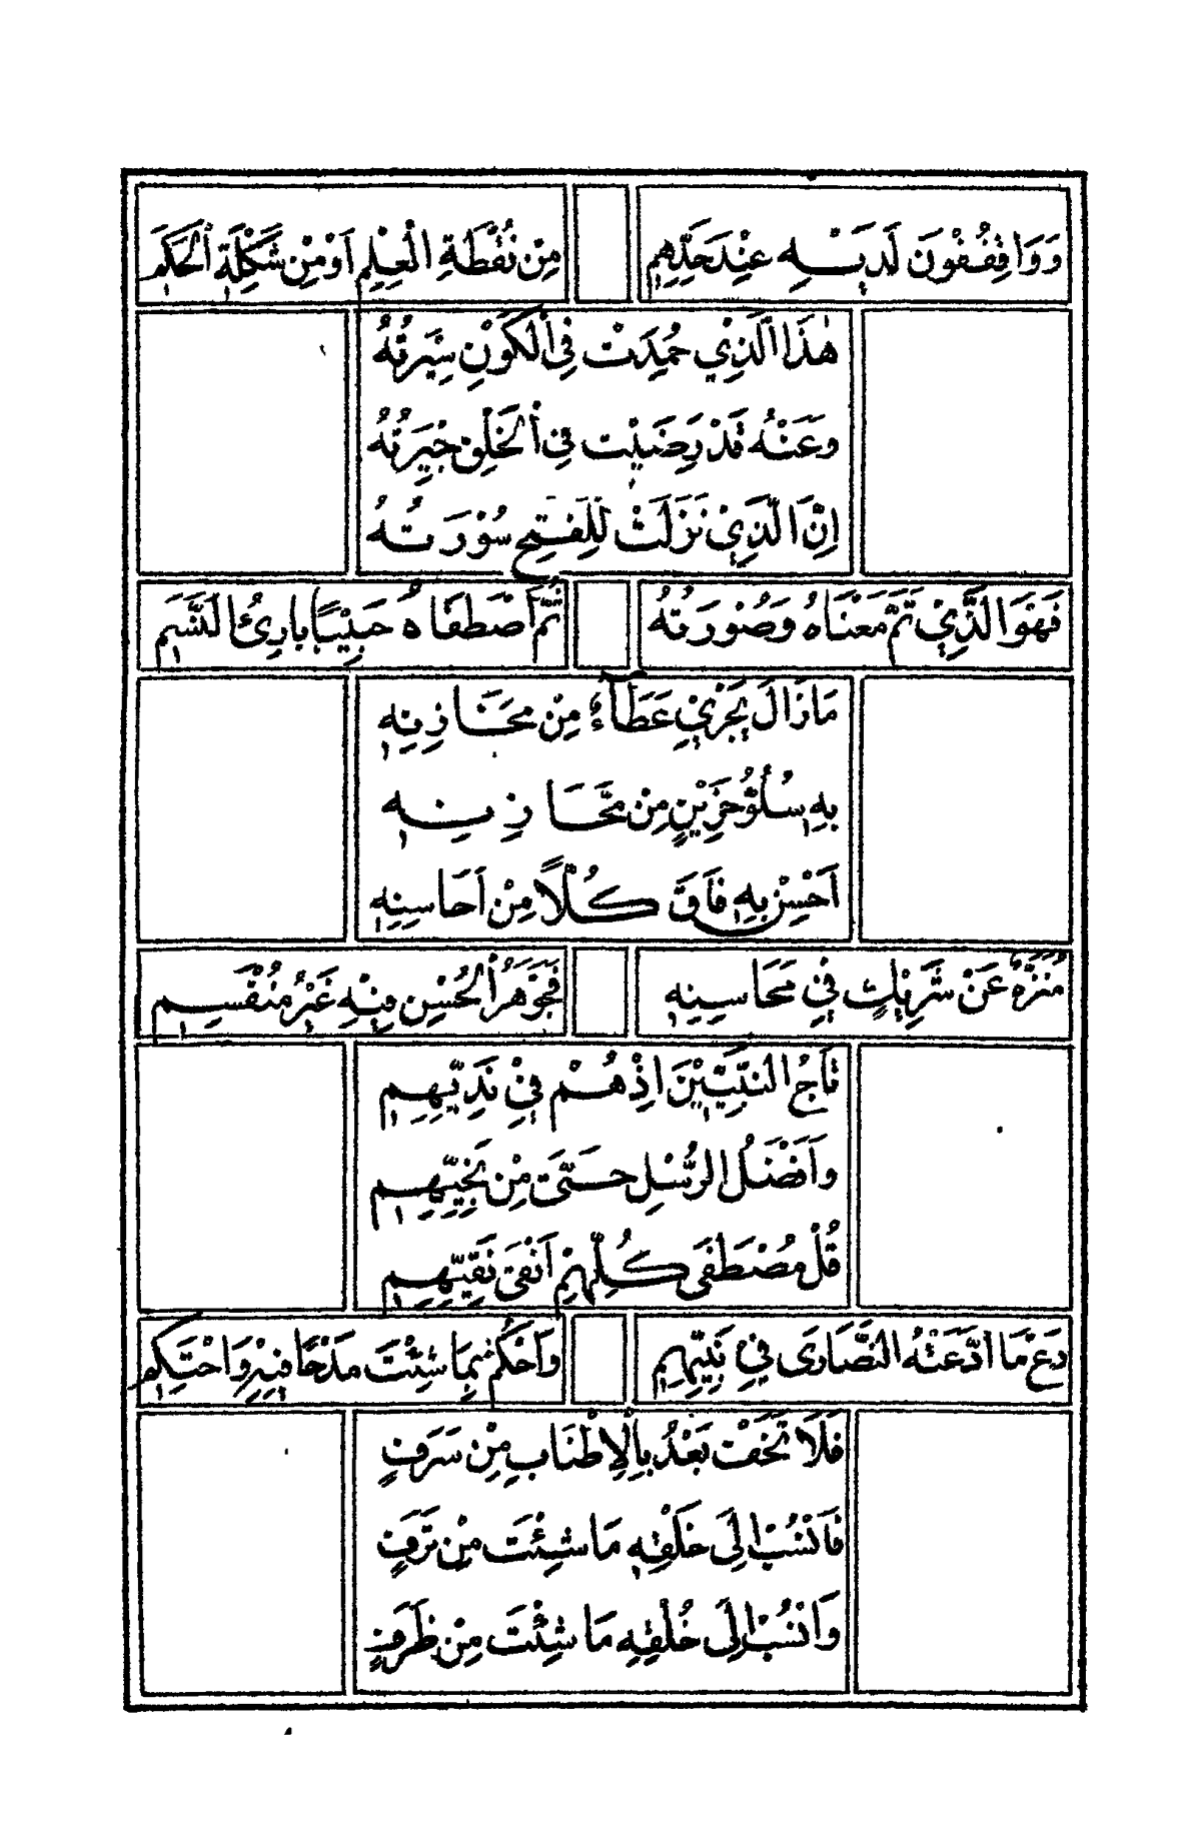 وَوَاقِفُوْنَ لَدَيْهِ عِنْدَ حَدِّهِمِ مِنْ نُقْطَةِ الْعِلْمِ اَوْمِنْ شَكْلَةِ الْحِكَمِ
هٰذَا الَّذِي حُمِدَتْ فِي الْكَوْنِ سِيْرَتُهُ
وَعَنْهُ قَدْ رَضِيَتْ فِي الْخَلْقِ جِيْرَتُهُ
اِنَّ الَّذِيْ نَزَلَتْ لِلْفَتْحِ سُوْرَتُهُ
فَهْوَ الَّذِيْ تَمَّ مَعْنَاهُ وَصُوْرَتُهُ ثُمَّ اصْطَفَاهُ حَبِيْبًا بَارِئُ النَّسَمِ
مَازَالَ يَجْزِيْ عَطَآءً مِنْ مَخَازِنِهِ
بِهِ سُلُوُّ حَزِيْنٍ مِنْ مَحَازِنِهِ
اَحْسِنْ بِهِ فَاقَ كُلًّا مِنْ اَحَاسِنِهِ
مُنَزَّهٌ عَنْ شَرِيْكٍ فِيْ مَحَاسِنِهِ فَجَوْهَرُ الْحُسْنِ فِيْهِ غَيْرُ مُنْقَسِمِ
تَاجُ النَّبِيِّيْنَ اِذْ هُمْ فِيْ نَدِيِّهِمِ
وَاَفْضَلُ الرُّسْلِ حَتّٰى مِنْ نَجِيِّهِمِ
قُلْ مُصْطَفَى كُلِّهِمْ اَنْقَى نَقِيِّهِمِ
دَعْ مَا ادَّعَتْهُ النَّصَارَى فِي نَبِيِّهِمِ وَاحْكُمْ بِمَا شِئْتَ مَدْحًا فِيْهِ وَاحْتَكِمِ
فَلَا تَخَفْ بَعْدُ بِالْاِطْنَابِ مِنْ سَرَفٍ
فَانْسُبْ اِلَى خَلْقِهِ مَا شِئْتَ مِنْ تَرَفٍ
وَانْسُبْ اِلَى خُلْقِهِ مَا شِئْتَ مِنْ ظَرَفٍ